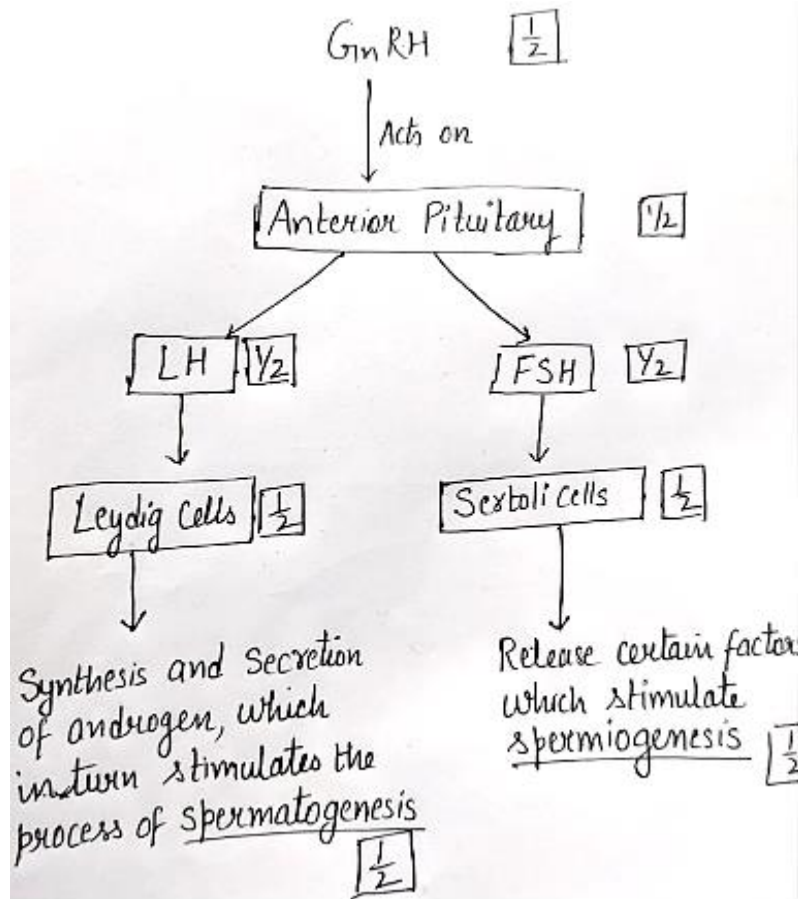 GnRH 1/2
Acts on
Anterior Pituitary 1/2
LH 1/2
FSH 1/2
Leydig cells 1/2
Sertoli cells 1/2
Synthesis and secretion
of androgen, which
in turn stimulates the
process of spermatogenesis
1/2
Release certain factors
which stimulate
spermiogenesis 1/2